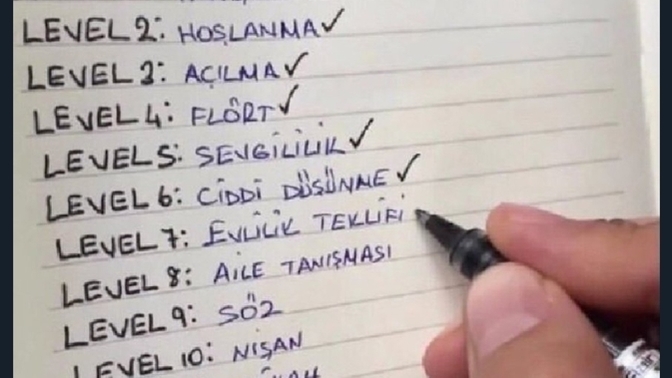 LEVEL 2: HOŞLANMA ✓
LEVEL 3: AÇILMA ✓
LEVEL 4: FLÖRT ✓
LEVEL 5: SEVGİLİLİK ✓
LEVEL 6: CİDDİ DÜŞÜNME ✓
LEVEL 7: EVLİLİK TEKLİFİ
LEVEL 8: AİLE TANIŞMASI
LEVEL 9: SÖZ
LEVEL 10: NİŞAN